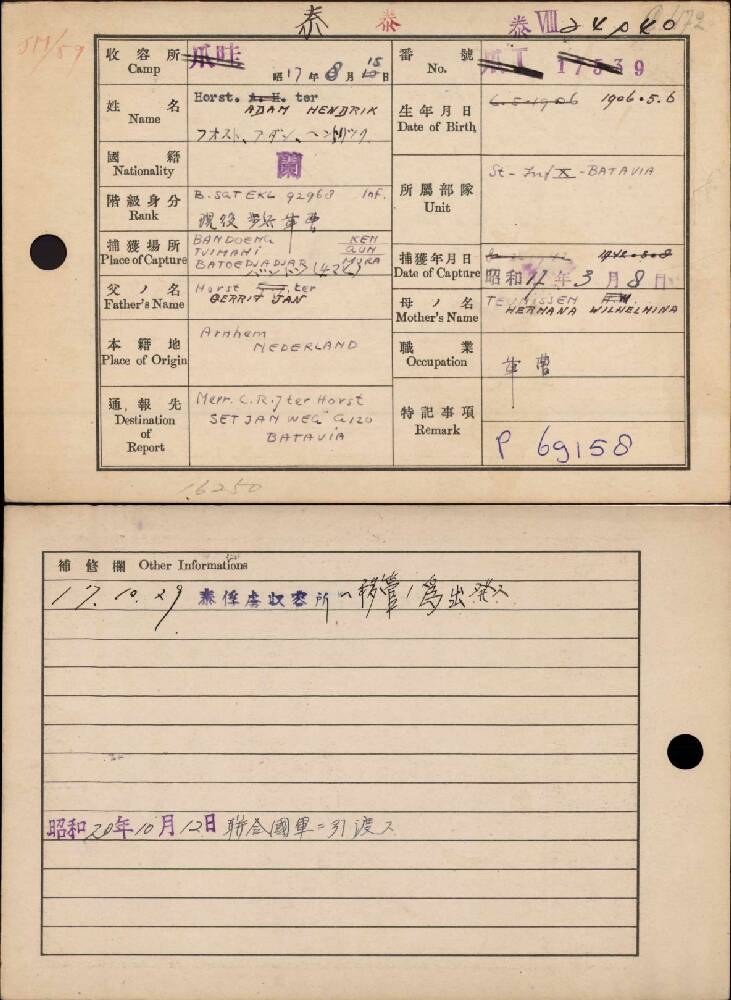 泰 泰 泰 VIII 24040
收容所 爪哇 番號 爪 I 17539
Camp 昭17年8月15日 No.
姓名 Horst. A. H. ter 生年月日 6.5.1906 1906.5.6
Name ADAM HENDRIK Date of Birth
國籍 蘭
Nationality
所屬部隊 St-Inf X-BATAVIA
Unit
階級身分 B. SGT EKL 92968 Inf.
Rank 現役 歩兵 軍曹
捕獲場所 BANDOENG
Place of Capture TJIMAHI
BATOEDJADJAR
捕獲年月日 1942-3-8
Date of Capture 昭和17年3月8日
父ノ名 Horst ter
Father's Name GERRIT JAN
母ノ名 TEUNISSEN H.W.
Mother's Name HERMANA WILHELMINA
本籍地 Arnhem
Place of Origin NEDERLAND
職業 軍曹
Occupation
通報先 Mevr. C. R. ter Horst
Destination SETJANWEG G120
of BATAVIA
Report
特記事項
Remark P 69158
16250
補修欄 Other Informations
17.10.29 泰俘虜収容所へ移管ノ為出発ス
昭和20年10月12日 聯合國軍ニ引渡ス